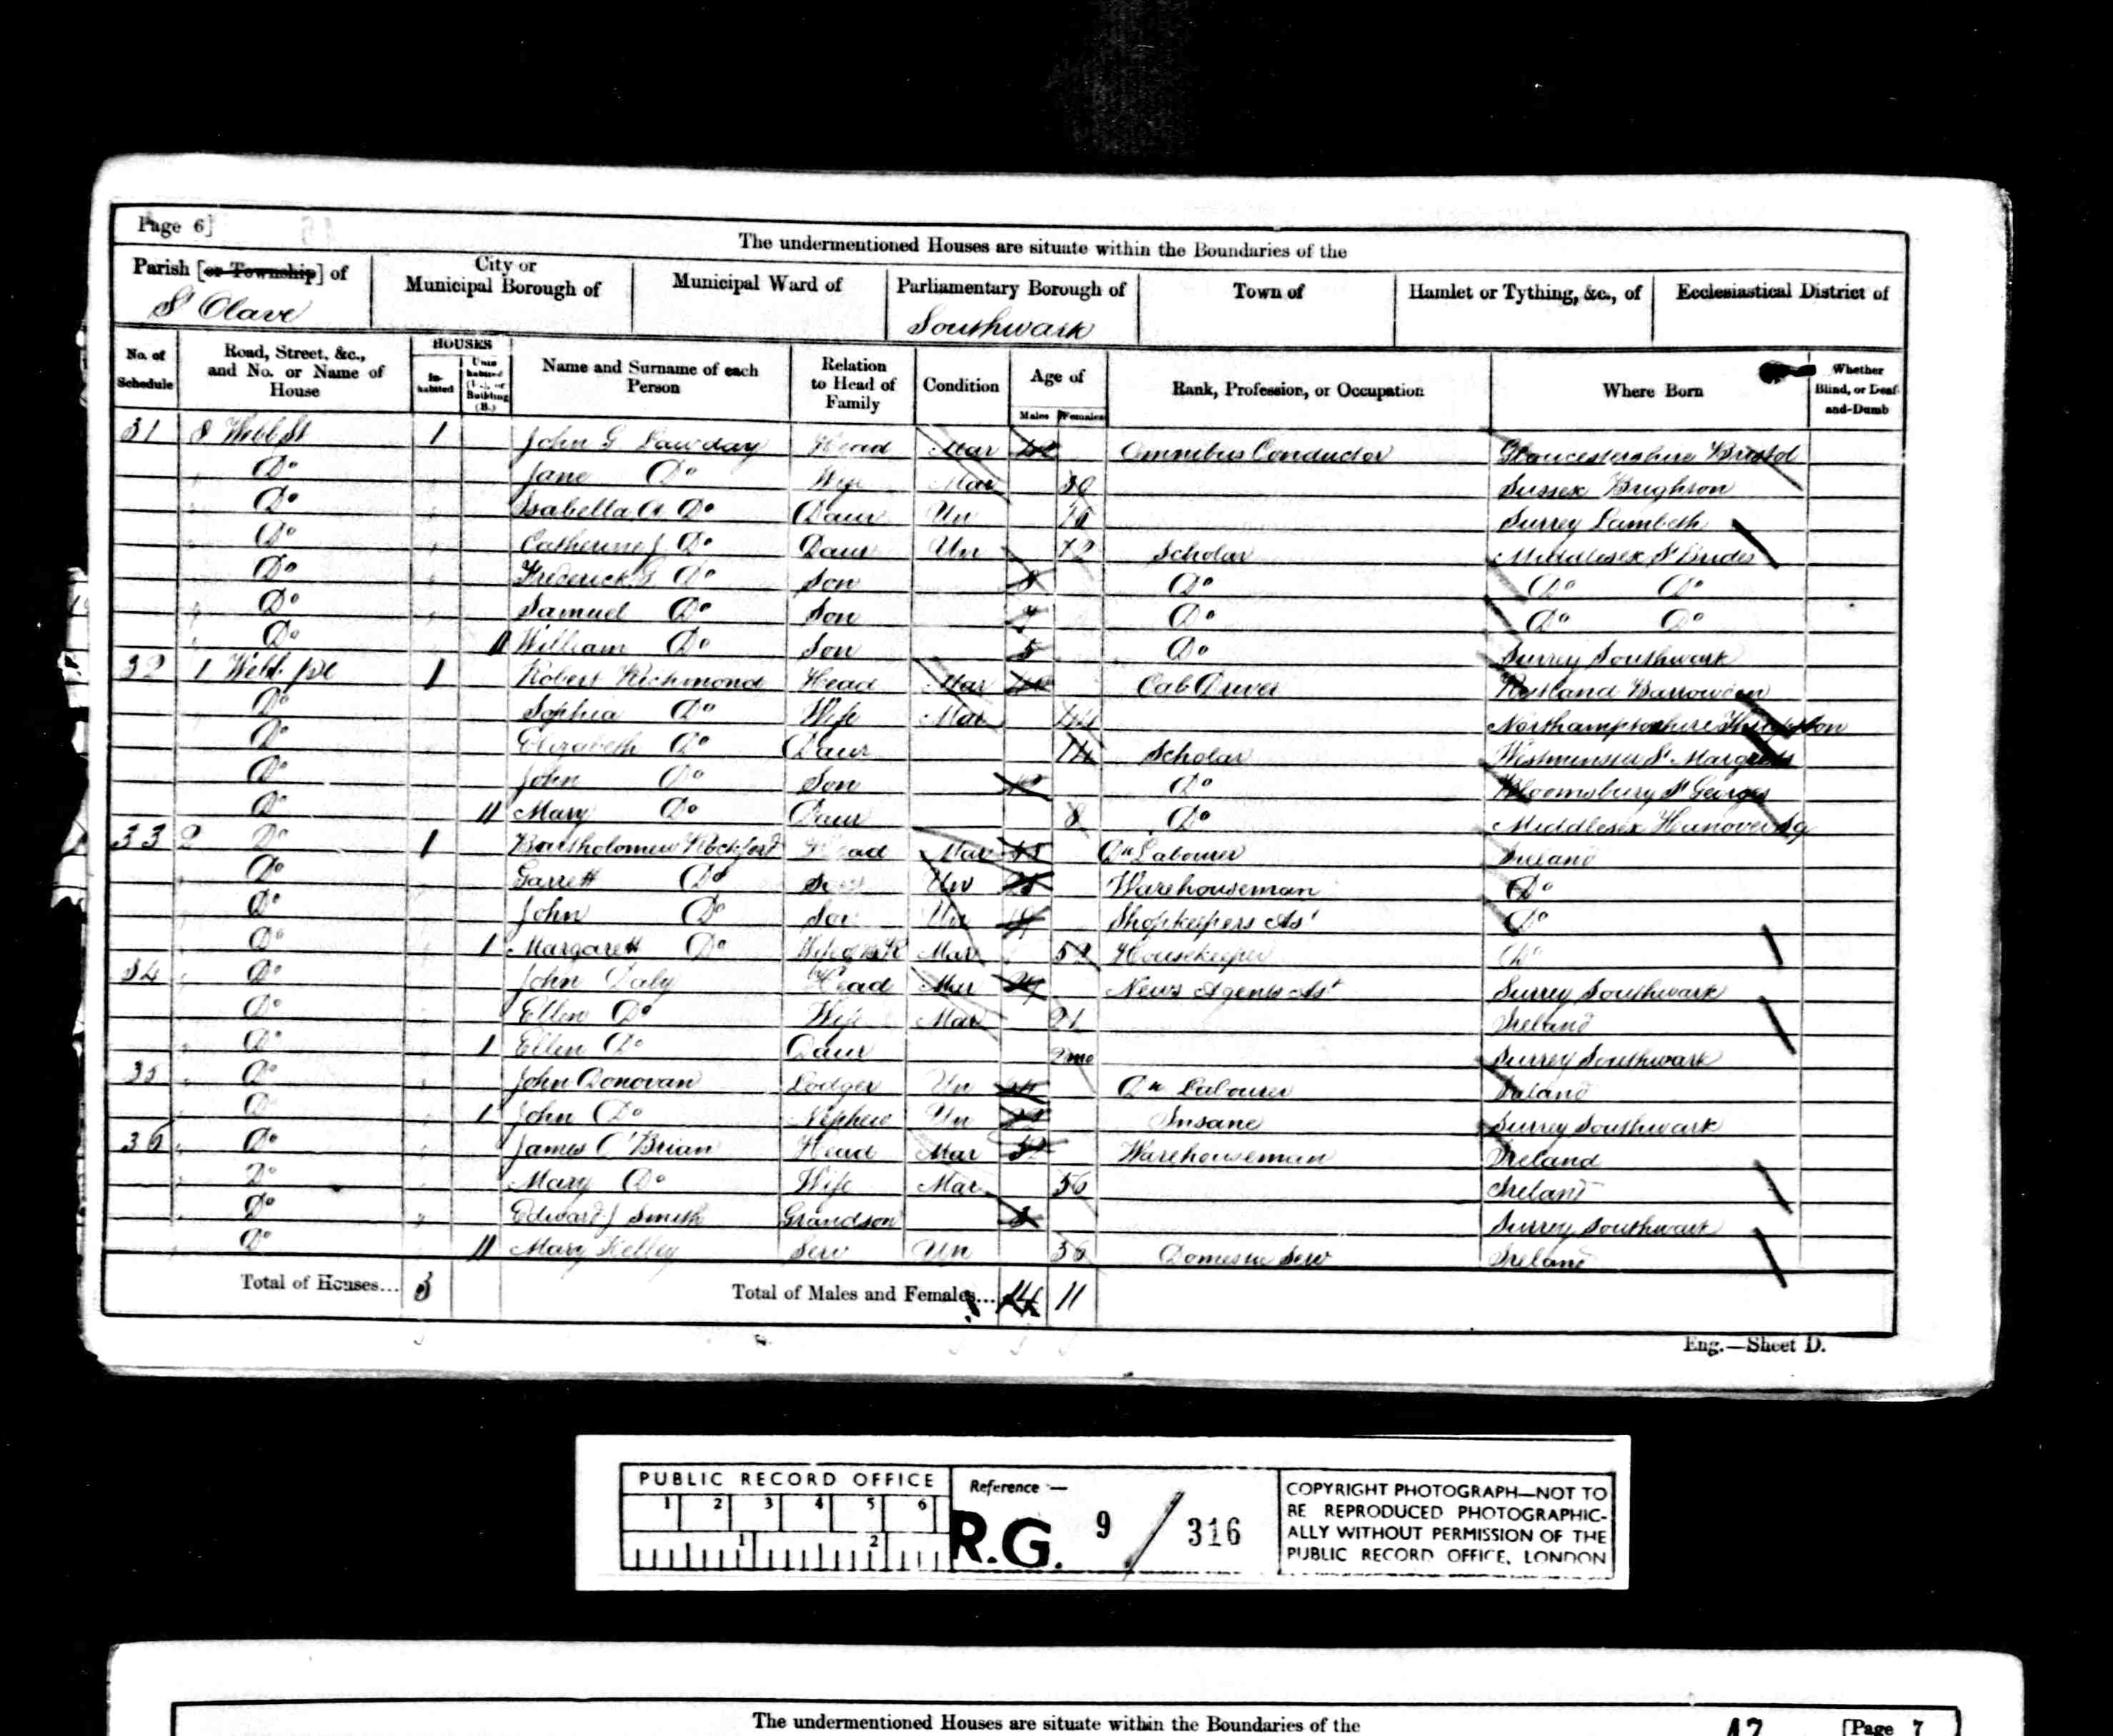 Page 6]
The undermentioned Houses are situate within the Boundaries of the
Parish [or Township] of City or Municipal Borough of Municipal Ward of Parliamentary Borough of Town of Hamlet or Tything, &c., of Ecclesiastical District of
St Olave Southwark
No. of Schedule Road, Street, &c., and No. or Name of House HOUSES Inhabited Uninhabited (U.), or Building (B.) Name and Surname of each Person Relation to Head of Family Condition Age of Males Females Rank, Profession, or Occupation Where Born Whether Blind, or Deaf-and-Dumb
31 8 Webb St 1 John G Lawday Head Mar Omnibus Conductor Gloucestershire Bristol
Do Jane Do Wife Mar Sussex Brighton
Do Isabella A Do Daur Un 16 Surrey Lambeth
Do Catherine J Do Daur Un 12 Scholar Middlesex St Brides
Do Frederick G Do Son 8 Do Do Do
Do Samuel Do Son 7 Do Do Do
Do William Do Son 5 Do Surrey Southwark
32 1 Webb Pl 1 Robert Richmond Head Mar Cab Driver Rutland Barrowden
Do Sophia Do Wife Mar 44 Northamptonshire
Do Elizabeth Do Daur 14 Scholar Westminster St Margrets
Do John Do Son Do Bloomsbury St Georges
Do Mary Do Daur 8 Do Middlesex Hanover Sq
33 2 Do 1 Bartholomew Rockford Head Mar 55 Dk Labourer Ireland
Do Garrett Do Son Un Warehouseman Do
Do John Do Son Un 19 Shopkeepers Ast Do
Do Margarett Do Mar 52 Housekeeper Do
34 Do John Daly Head Mar 29 News Agents Ast Surrey Southwark
Do Ellen Do Wife Mar 21 Ireland
Do Ellen Do Daur 2mo Surrey Southwark
35 Do John Donovan Lodger Un Dk Labourer Ireland
Do John Do Nephew Un Insane Surrey Southwark
36 Do James O'Brian Head Mar Warehouseman Ireland
Do Mary Do Wife Mar 56 Ireland
Do Edward J Smith Grandson Surrey Southwark
Do Mary Kelley Serv Un 36 Domestic Serv Ireland
Total of Houses... 3 Total of Males and Females... 14 11
Eng.—Sheet D.
PUBLIC RECORD OFFICE
1 2 3 4 5 6
1 2
Reference :—
R.G. 9 / 316
COPYRIGHT PHOTOGRAPH—NOT TO
BE REPRODUCED PHOTOGRAPHIC-
ALLY WITHOUT PERMISSION OF THE
PUBLIC RECORD OFFICE, LONDON
The undermentioned Houses are situate within the Boundaries of the
[Page 7